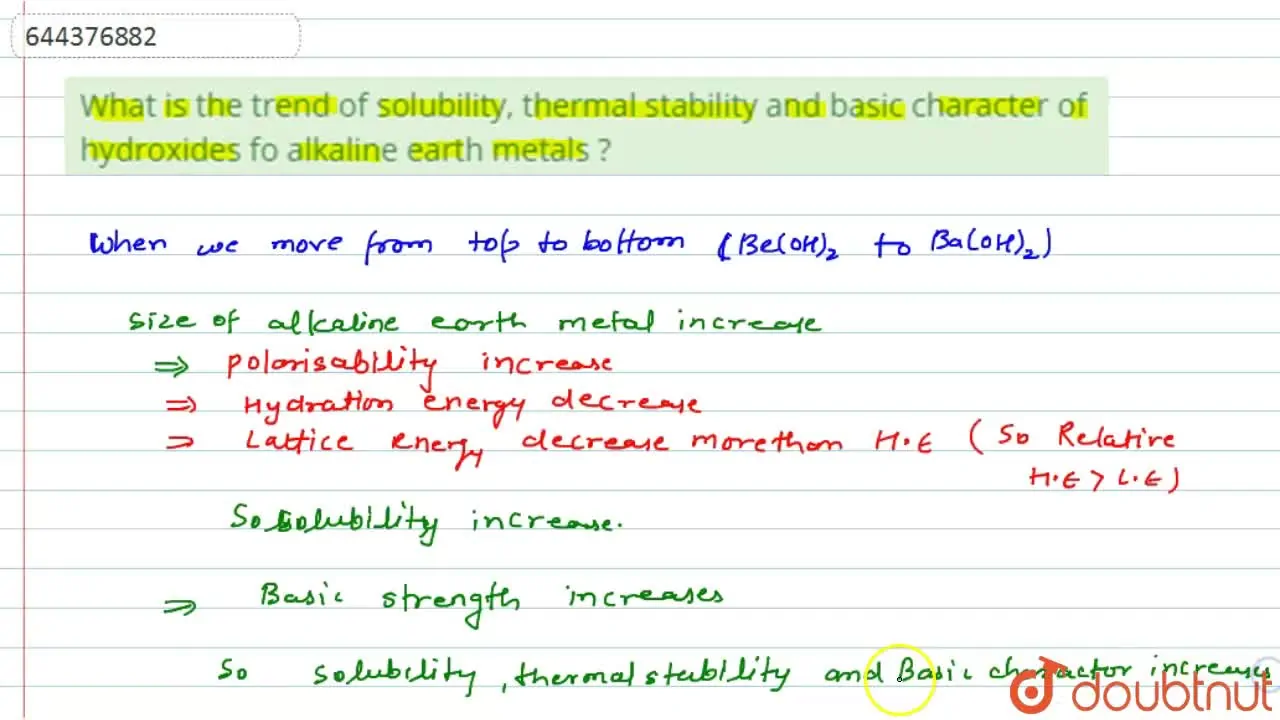 644376882
What is the trend of solubility, thermal stability and basic character of
hydroxides fo alkaline earth metals ?
When we move from top to bottom (Be(OH)₂ to Ba(OH)₂)
Size of alkaline earth metal increase
⇒ Polarisability increase
⇒ Hydration energy decrease
⇒ Lattice energy decrease more than H.E ( So Relative
H.E > L.E )
So solubility increase.
⇒ Basic strength increases
So solubility, thermal stability and Basic charactor increases
doubtnut